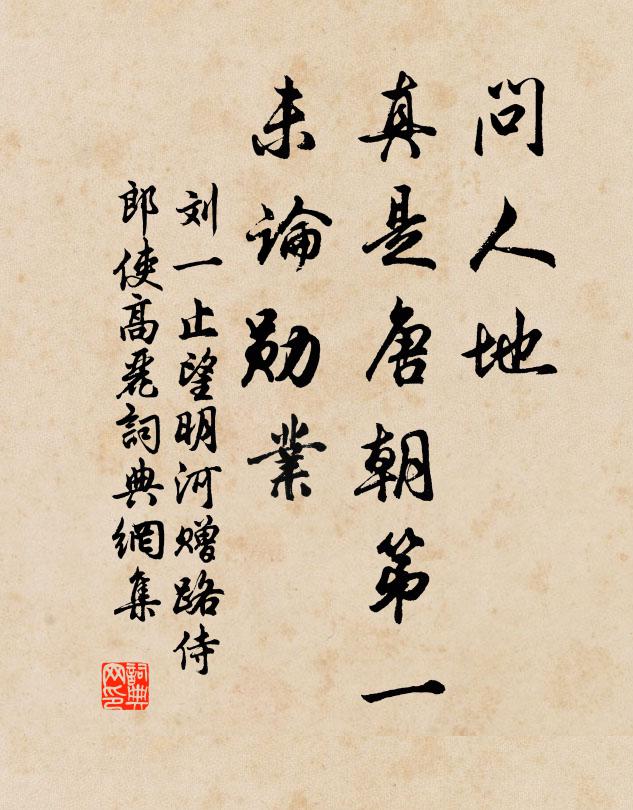 問人地
真是唐朝第一
未論勋業
刘一止望明河赠路侍
郎使高麗詞典網集
詞典
网印